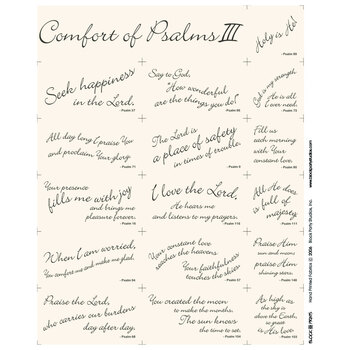 Comfort of Psalms III
Holy is He!
-Psalm 99
Seek happiness
in the Lord.
-Psalm 37
Say to God,
"How wonderful
are the things you do!"
-Psalm 66
God is my strength
He is all
I ever need.
-Psalm 73
All day long I praise You
and proclaim Your glory.
-Psalm 71
The Lord is
a place of safety
in times of trouble.
-Psalm 9
Fill us
each morning
with Your
constant love.
-Psalm 90
Your presence
fills me with joy
and brings me
pleasure forever.
-Psalm 16
I love the Lord,
He hears me
and listens to my prayers.
-Psalm 116
All He does
is full of
majesty
-Psalm 111
When I am worried,
You comfort me and make me glad.
-Psalm 94
Your constant love
reaches the heavens
Your faithfulness
touches the skies
Praise Him
sun and moon
praise Him
shining stars.
-Psalm 148
Praise the Lord,
who carries our burdens
day after day.
-Psalm 68
You created the moon
to make the months.
The sun knows
the time to set.
-Psalm 104
As high as
the sky is
above the Earth,
so great
is His love
-Psalm 103
www.blockpartystudios.com
Block Party Studios, Inc.
Hand Printed Fabrics © 2008